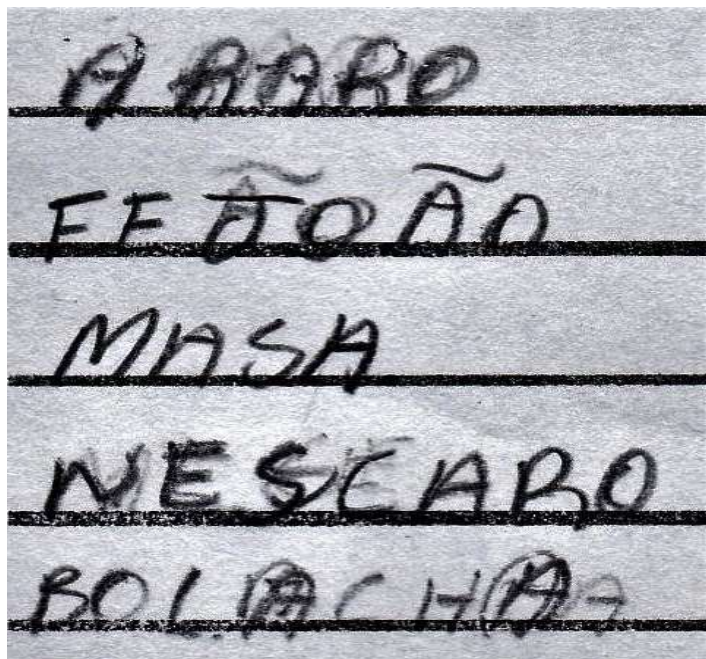 ARARO
FFÃOÃO
MASA
NESCARO
BOLACHA